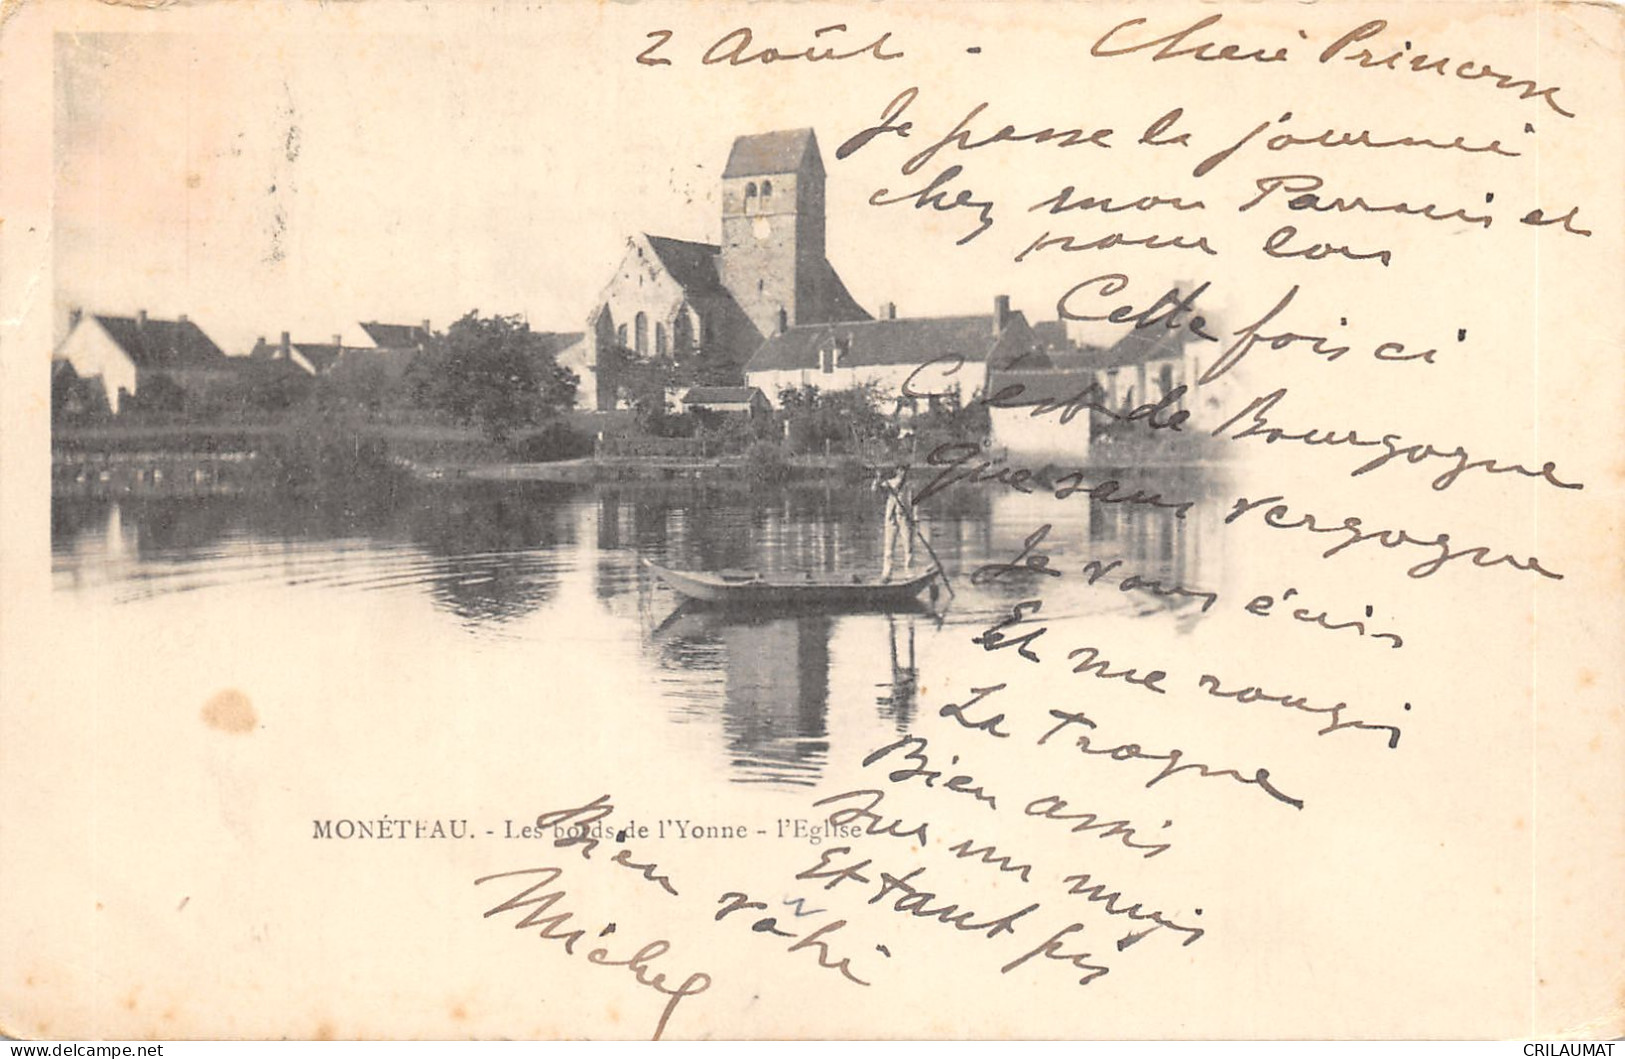 2 Août - Chère Princesse
Je passe la journée
chez mon Parrain et
pour lors
Cette fois ci
C'est de Bourgogne
Que sans vergogne
Je vous écris
Et me rougis
La Trogne
Bien assis
Sur un muis
Et tant pis
Bien
Michel
MONÉTEAU. - Les bords de l'Yonne - l'Eglise
CRILAUMAT